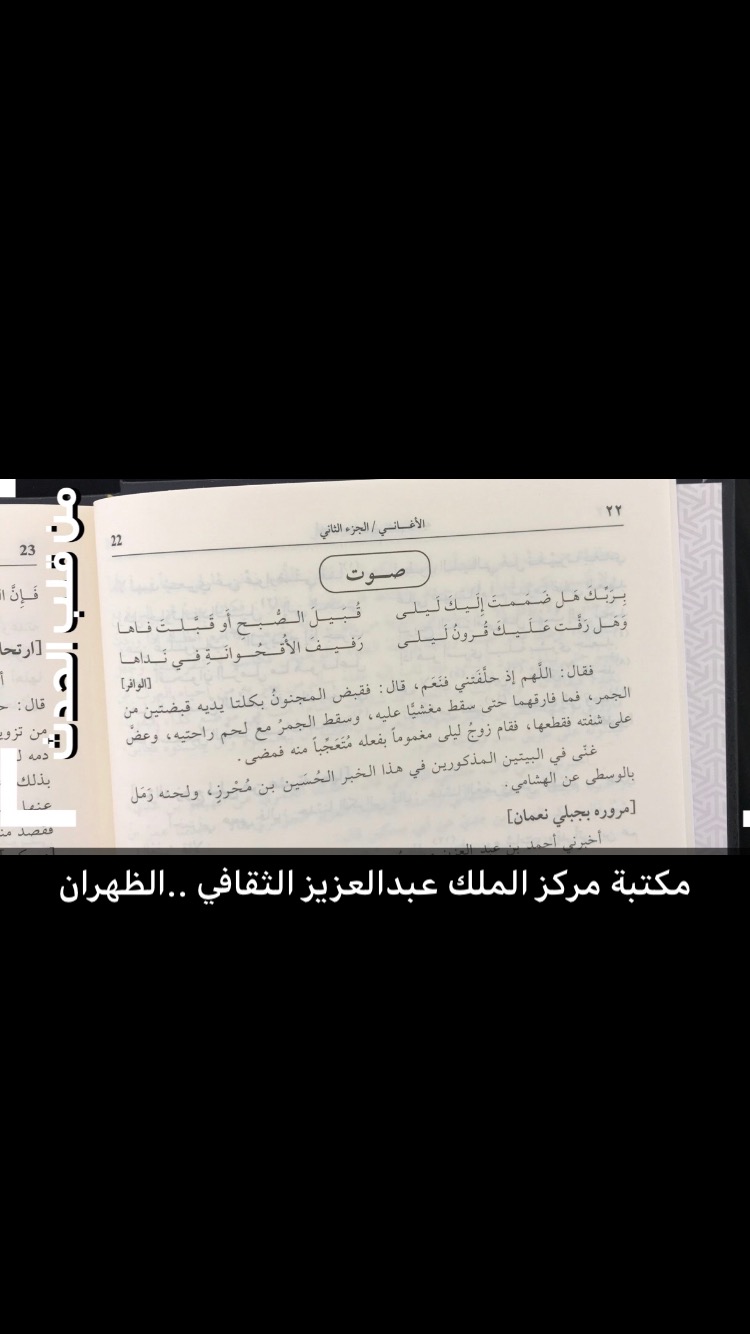 من قلب الحدث
٢٢
الأغاني / الجزء الثاني
22
صوت
بِرَبِّكَ هَل ضَمَمتَ إِلَيكَ لَيلى قُبَيلَ الصُّبحِ أَو قَبَّلتَ فاها
وَهَل رَفَّت عَلَيكَ قُرونُ لَيلى رَفيفَ الأُقحُوانَةِ في نَداها
[الوافر]
فقال: اللَّهم إذ حلَّفتَني فنَعَم، قال: فقبض المجنونُ بكلتا يديه قبضتين من
الجمر، فما فارقهما حتى سقط مغشيًّا عليه، وسقط الجمرُ مع لحم راحتيه، وعضَّ
على شفته فقطعها، فقام زوجُ ليلى مغموماً بفعله مُتَعَجِّباً منه فمضى.
غنّى في البيتين المذكورين في هذا الخبر الحُسَين بن مُحْرزٍ، ولحنه رَمَل
بالوسطى عن الهشامي.
[مروره بجبلي نعمان]
أخبرني أحمد بن عبد العزيز
23
فَإنَّ
[ارتحا
قال:
من تزوي
دمه
بذلك
عنها
فقصد
مكتبة مركز الملك عبدالعزيز الثقافي ..الظهران